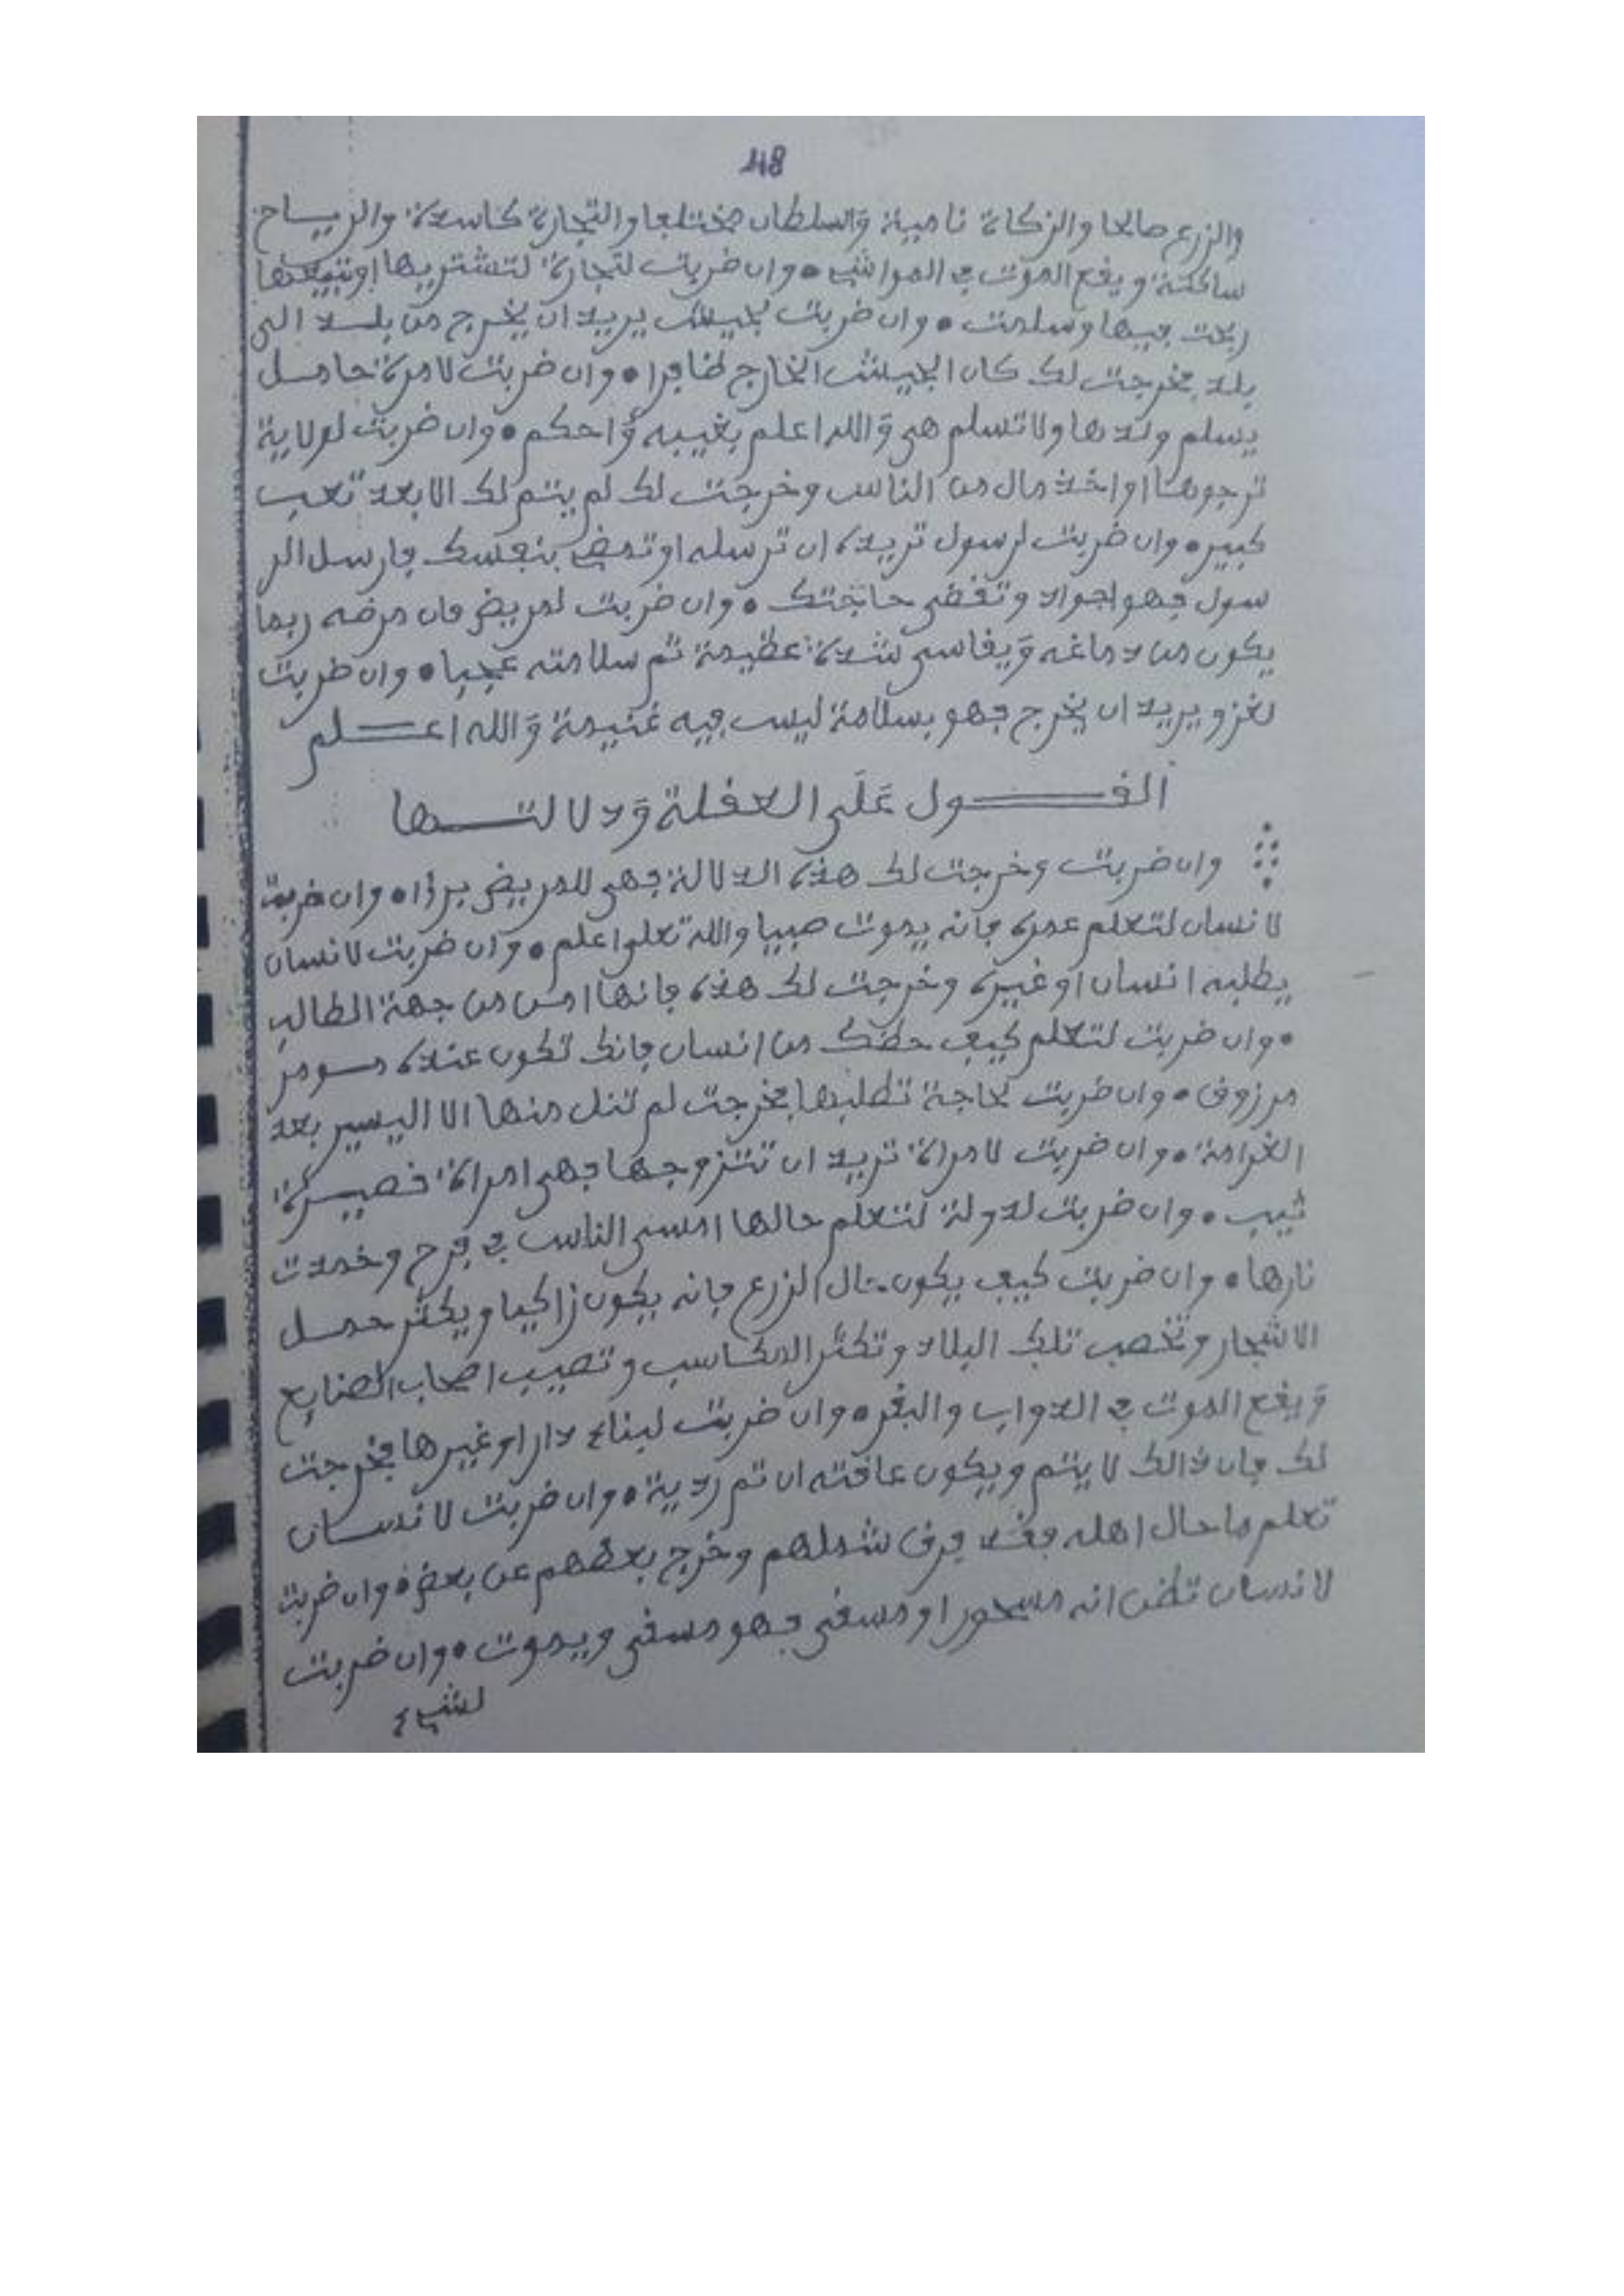 48
والزرع صالحا والزكاة نامية وَالسلطان مختلفا والتجارة كاسدة والريـاح
ساكنة ويقع الموت في المواشي • وان ضربت لتجارة لتشتريها او تبيعها
ربحت فيها وسلمت • وان ضربت لجيش يريد ان يخرج من بلد الى
بلد فخرجت لك كان الجيش الخارج ظافرا • وان ضربت لامرة حامل
يسلم ولدها ولا تسلم هي وَالله اعلم بغيبه وَاحكم • وان ضربت لولاية
ترجوها او اخذ مال من الناس وخرجت لك لم يتم لك الا بعد تعب
كبير • وان ضربت لرسول تريد ان ترسله او تمض بنفسك فارسل الر
سول فهو اجواد وتقضى حاجتك • وان ضربت لمريض فان مرضه ربما
يكون من دماغه وَيقاسى شدة عظيمة ثم سلامته عجبا • وان ضربت
لغزو يريد ان يخرج فهو بسلامة ليس فيه غنيمة وَالله اعـلم
القـول عَلَى العقلة وَدلالتـها
وان ضربت وخرجت لك هذه الدلالة فهي للمريض برؤا • وان ضربت
لانسان لتعلم عمره فانه يموت صبيا والله تعلى اعلم • وان ضربت لانسان
يطلبه انسان او غيره وخرجت لك هذه فانها امن من جهة الطالب
• وان ضربت لتعلم كيف حظك من انسان فانك تكون عنده
مرزوق • وان ضربت لحاجة تطلبها فخرجت لم تنل منها الا اليسير بعد
الغرامة • وان ضربت لامراة تريد ان تتزوجها فهي امراة قصيـرة
ثيب • وان ضربت لدولة لتعلم حالها امسى الناس في فرح وخمدت
نارها • وان ضربت كيف يكون حال الزرع فانه يكون زاكيا ويكثر حمـل
الاشجار وتخصب تلك البلاد وتكثر المكاسب وتصيب اصحاب الصنايع
وَيقع الموت في الدواب والبقر • وان ضربت لبناء دار او غيرها فخرجت
لك فان ذالك لا يتم ويكون عاقبته ان تم ردية • وان ضربت لانسـان
تعلم ما حال اهله فقد فرق شملهم وخرج بعظهم عن بعض • وان ضربت
لانسان تظن انه مسحور او مسقى فهو مسقى ويموت • وان ضربت
لشيء